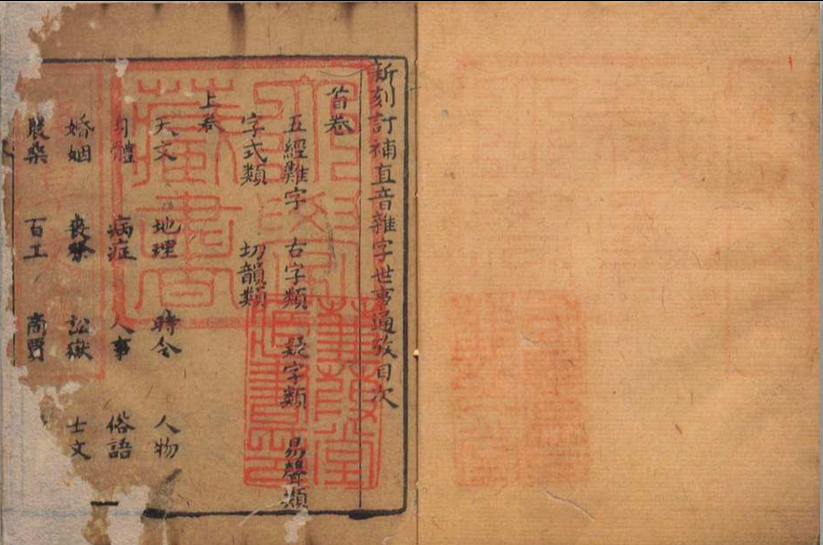 新刻訂補直音雜字世事通攷目次
首卷
五經難字 右字類 疑字類 易聲類
字式類 切韻類
上卷
天文 地理 時令 人物
身體 病症 人事 俗語
婚姻 喪祭 訟獄 士文
農桑 百工 商賈
藏書